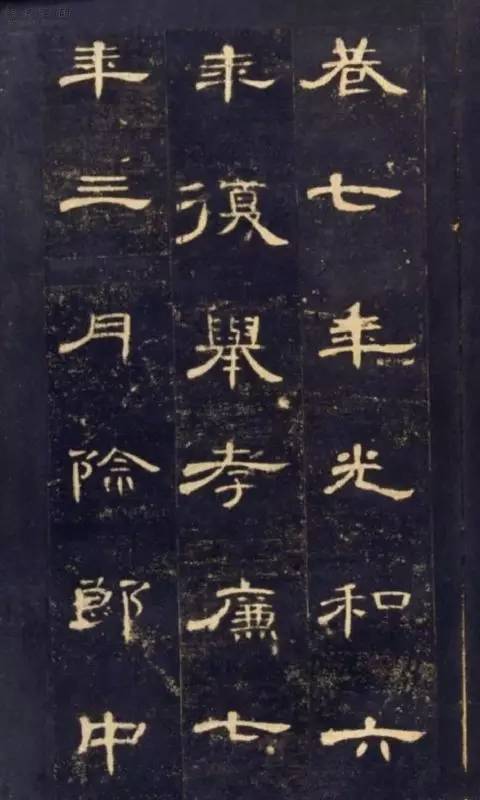 巷七年光和六
年復舉孝廉七
年三月除郎中